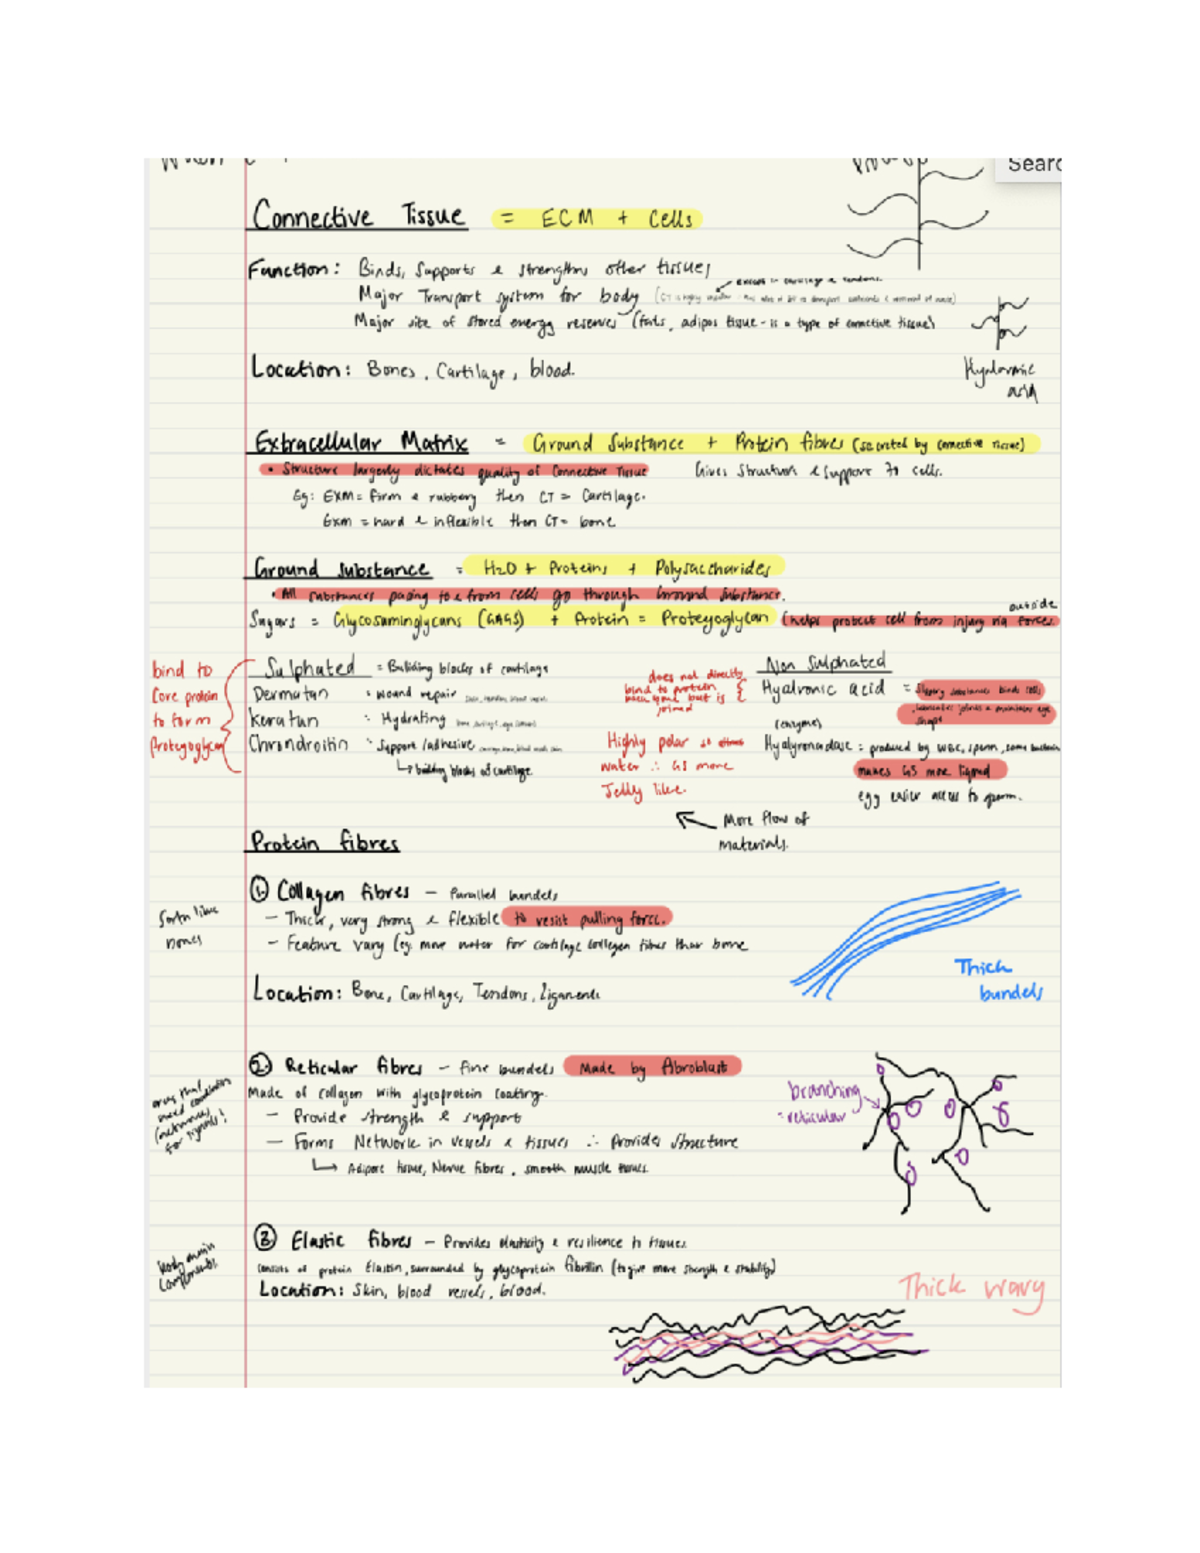 Sear
Connective Tissue = ECM + Cells
Function: Binds, Supports & strengthns other tissues
except in cartilage & tendons.
Major Transport system for body
Major site of stored energy reserves (fats, adipos tissue - is a type of connective tissue)
Hyalurmic
acid
Location: Bones, Cartilage, blood.
Extracellular Matrix = Ground Substance + Protein fibres (secreted by connective tissue)
• Structure largerly dictates quality of Connective Tissue Gives Structure & support to cells.
Eg: EXM = firm & rubbery then CT = Cartilage.
Exm = hard & inflexible then CT = bone
Ground substance = H2O + Proteins + Polysaccharides
• All substances passing to & from cells go through Ground Substance.
outside
Sugars = Glycosaminglycans (GAGS) + Protein = Proteyoglycan (helps protect cell from injury via forces
bind to
Core protein
to form
Proteyoglycan
Sulphated = Building blocks of cartilage
Dermatan : wound repair
Keratan : Hydrating
Chrondroitin : Support /adhesive
building blocks of cartilage
does not directly
bind to protein
back bone but is
joined
Highly polar
water ∴ GS more
Jelly like.
Non Sulphated
Hyalvronic acid = Slippery substance binds cells
, lubricates joints & maintains eye
shape
(enzyme)
Hyalyronadase : produced by WBC, sperm, some bacteria
makes GS more liquid
egg easier access to sperm.
More flow of
materials.
Protein fibres
① Collagen fibres – Parallel bundels
– Thick, very strong & flexible to resist pulling force.
– Feature vary (eg. more water for cartilage collagen fibres than bone
Location: Bone, Cartilage, Tendons, Ligaments
Thick
bundels
② Reticular fibres – fine bundels Made by fibroblast
Made of collagen with glycoprotein coating.
– Provide strength & support
– Forms Network in vessels & tissues ∴ Provides structure
Adipose tissue, Nerve fibres, smooth muscle tissues.
branching
= reticular
③ Elastic fibres – Provides elasticity & resilience to tissues
consists of protein Elastin, surrounded by glycoprotein fibrillin (to give more strength & stability)
Location: Skin, blood vessels, blood.
Thick wavy